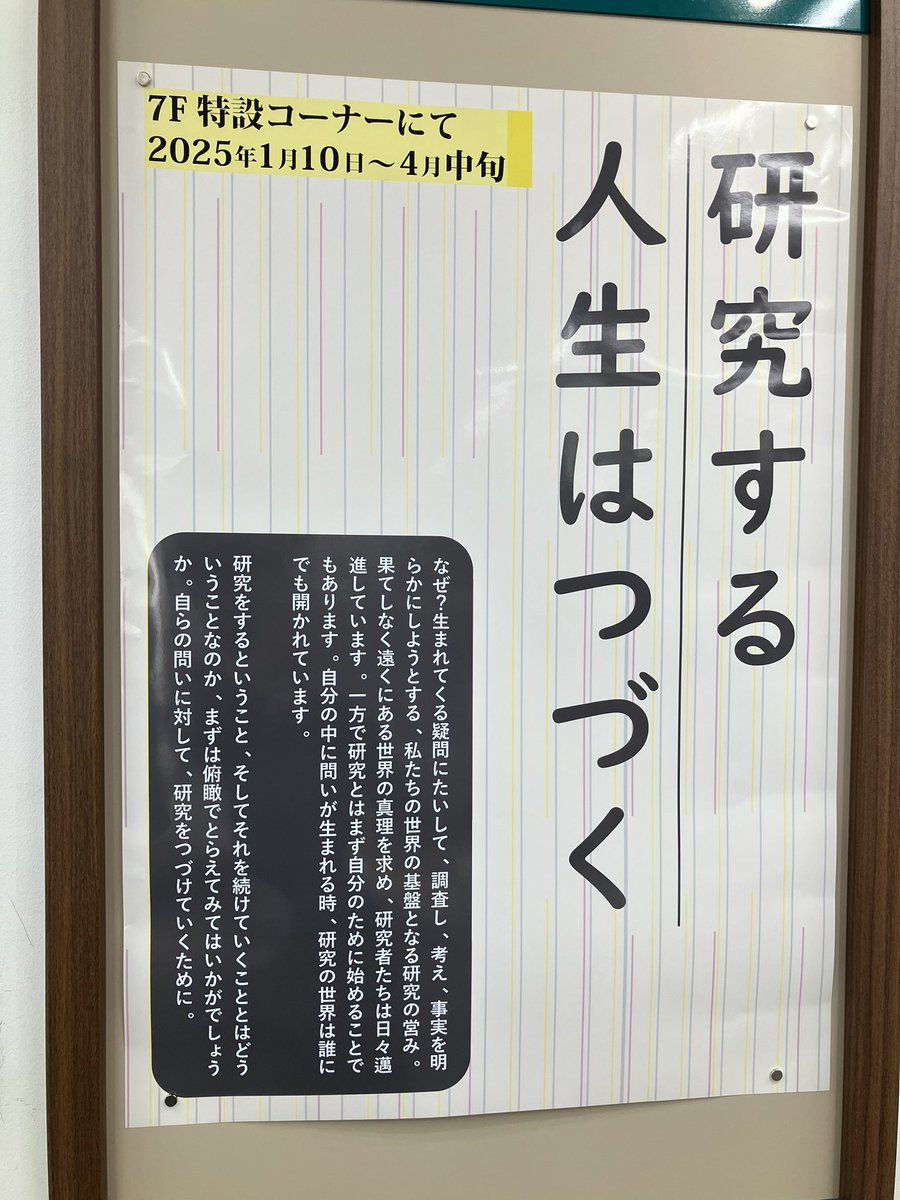 7F 特設コーナーにて
2025年1月10日～4月中旬
研究する
人生はつづく
なぜ？生まれてくる疑問にたいして、調査し、考え、事実を明
らかにしようとする、私たちの世界の基盤となる研究の営み。
果てしなく遠くにある世界の真理を求め、研究者たちは日々邁
進しています。一方で研究とはまず自分のために始めることで
もあります。自分の中に問いが生まれる時、研究の世界は誰に
でも開かれています。
研究をするということ、そしてそれを続けていくこととはどう
いうことなのか、まずは俯瞰でとらえてみてはいかがでしょう
か。自らの問いに対して、研究をつづけていくために。